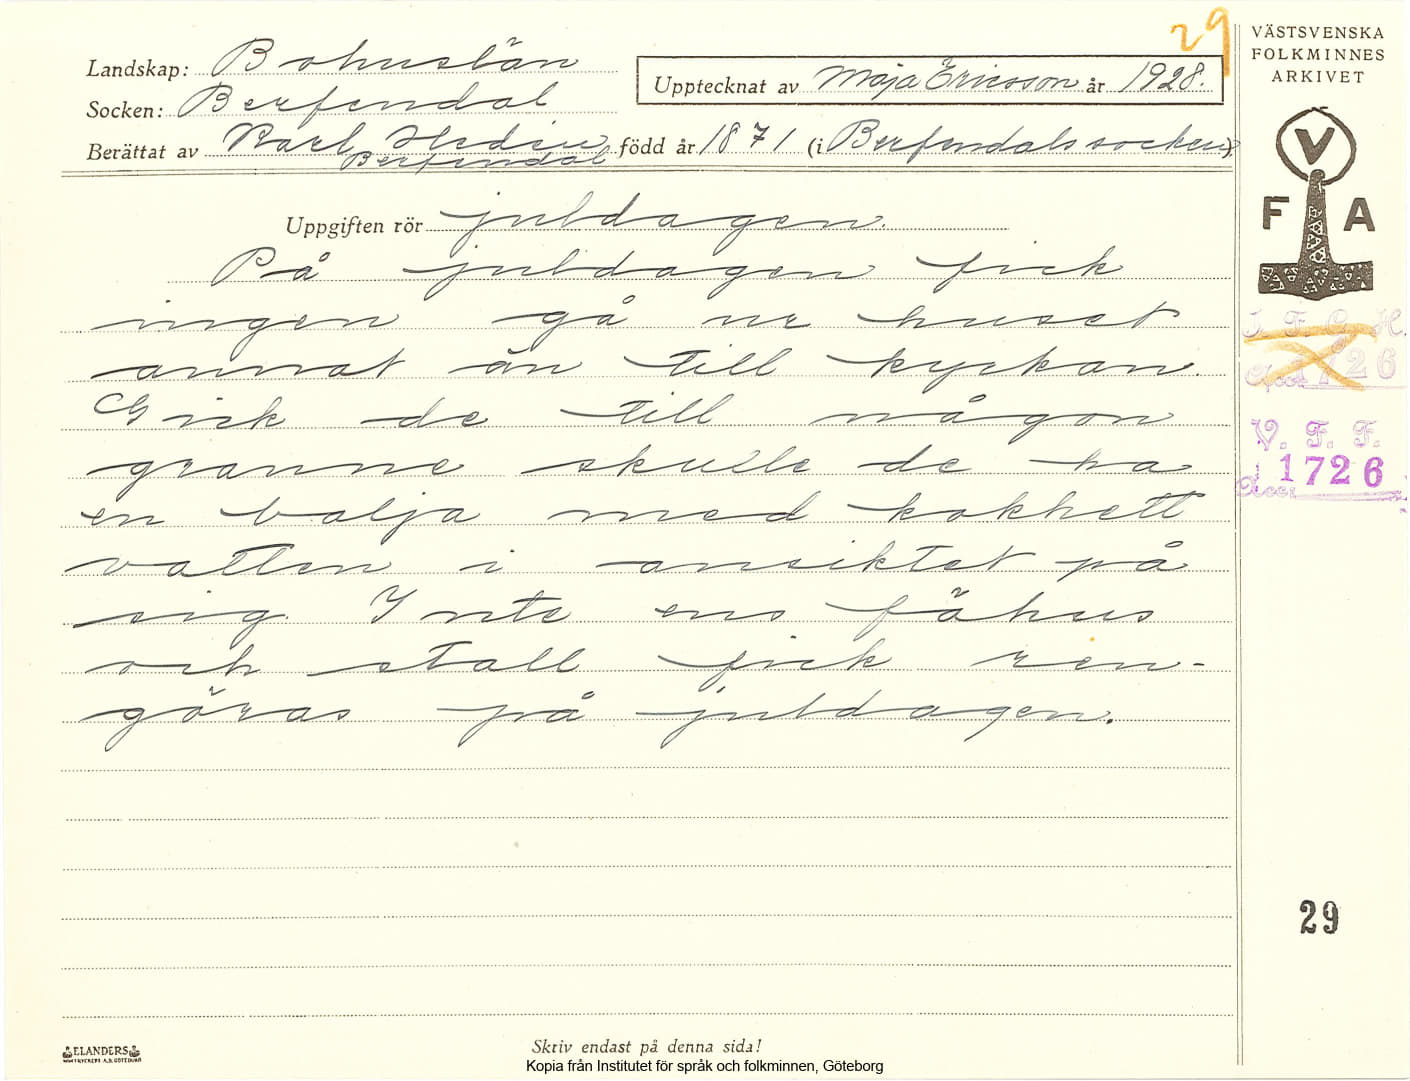 29
VÄSTSVENSKA
FOLKMINNES
ARKIVET
Landskap: Bohuslän
Upptecknat av Maja Ericsson år 1928.
Socken: Berfendal
Berättat av Karl Hedin född år 1871 (i Berfendals socken)
Berfendal
V
F A
Uppgiften rör juldagen.
På juldagen fick
ingen gå ur huset
annat än till kyrkan.
Gick de till någon
granne skulle de ha
en balja med kokhett
vatten i ansiktet på
sig. Inte ens fähus
och stall fick ren-
göras på juldagen.
I. F. G. H.
Acc. 1726
V. F. F.
Acc. 1726
29
ELANDERS
Skriv endast på denna sida!
Kopia från Institutet för språk och folkminnen, Göteborg